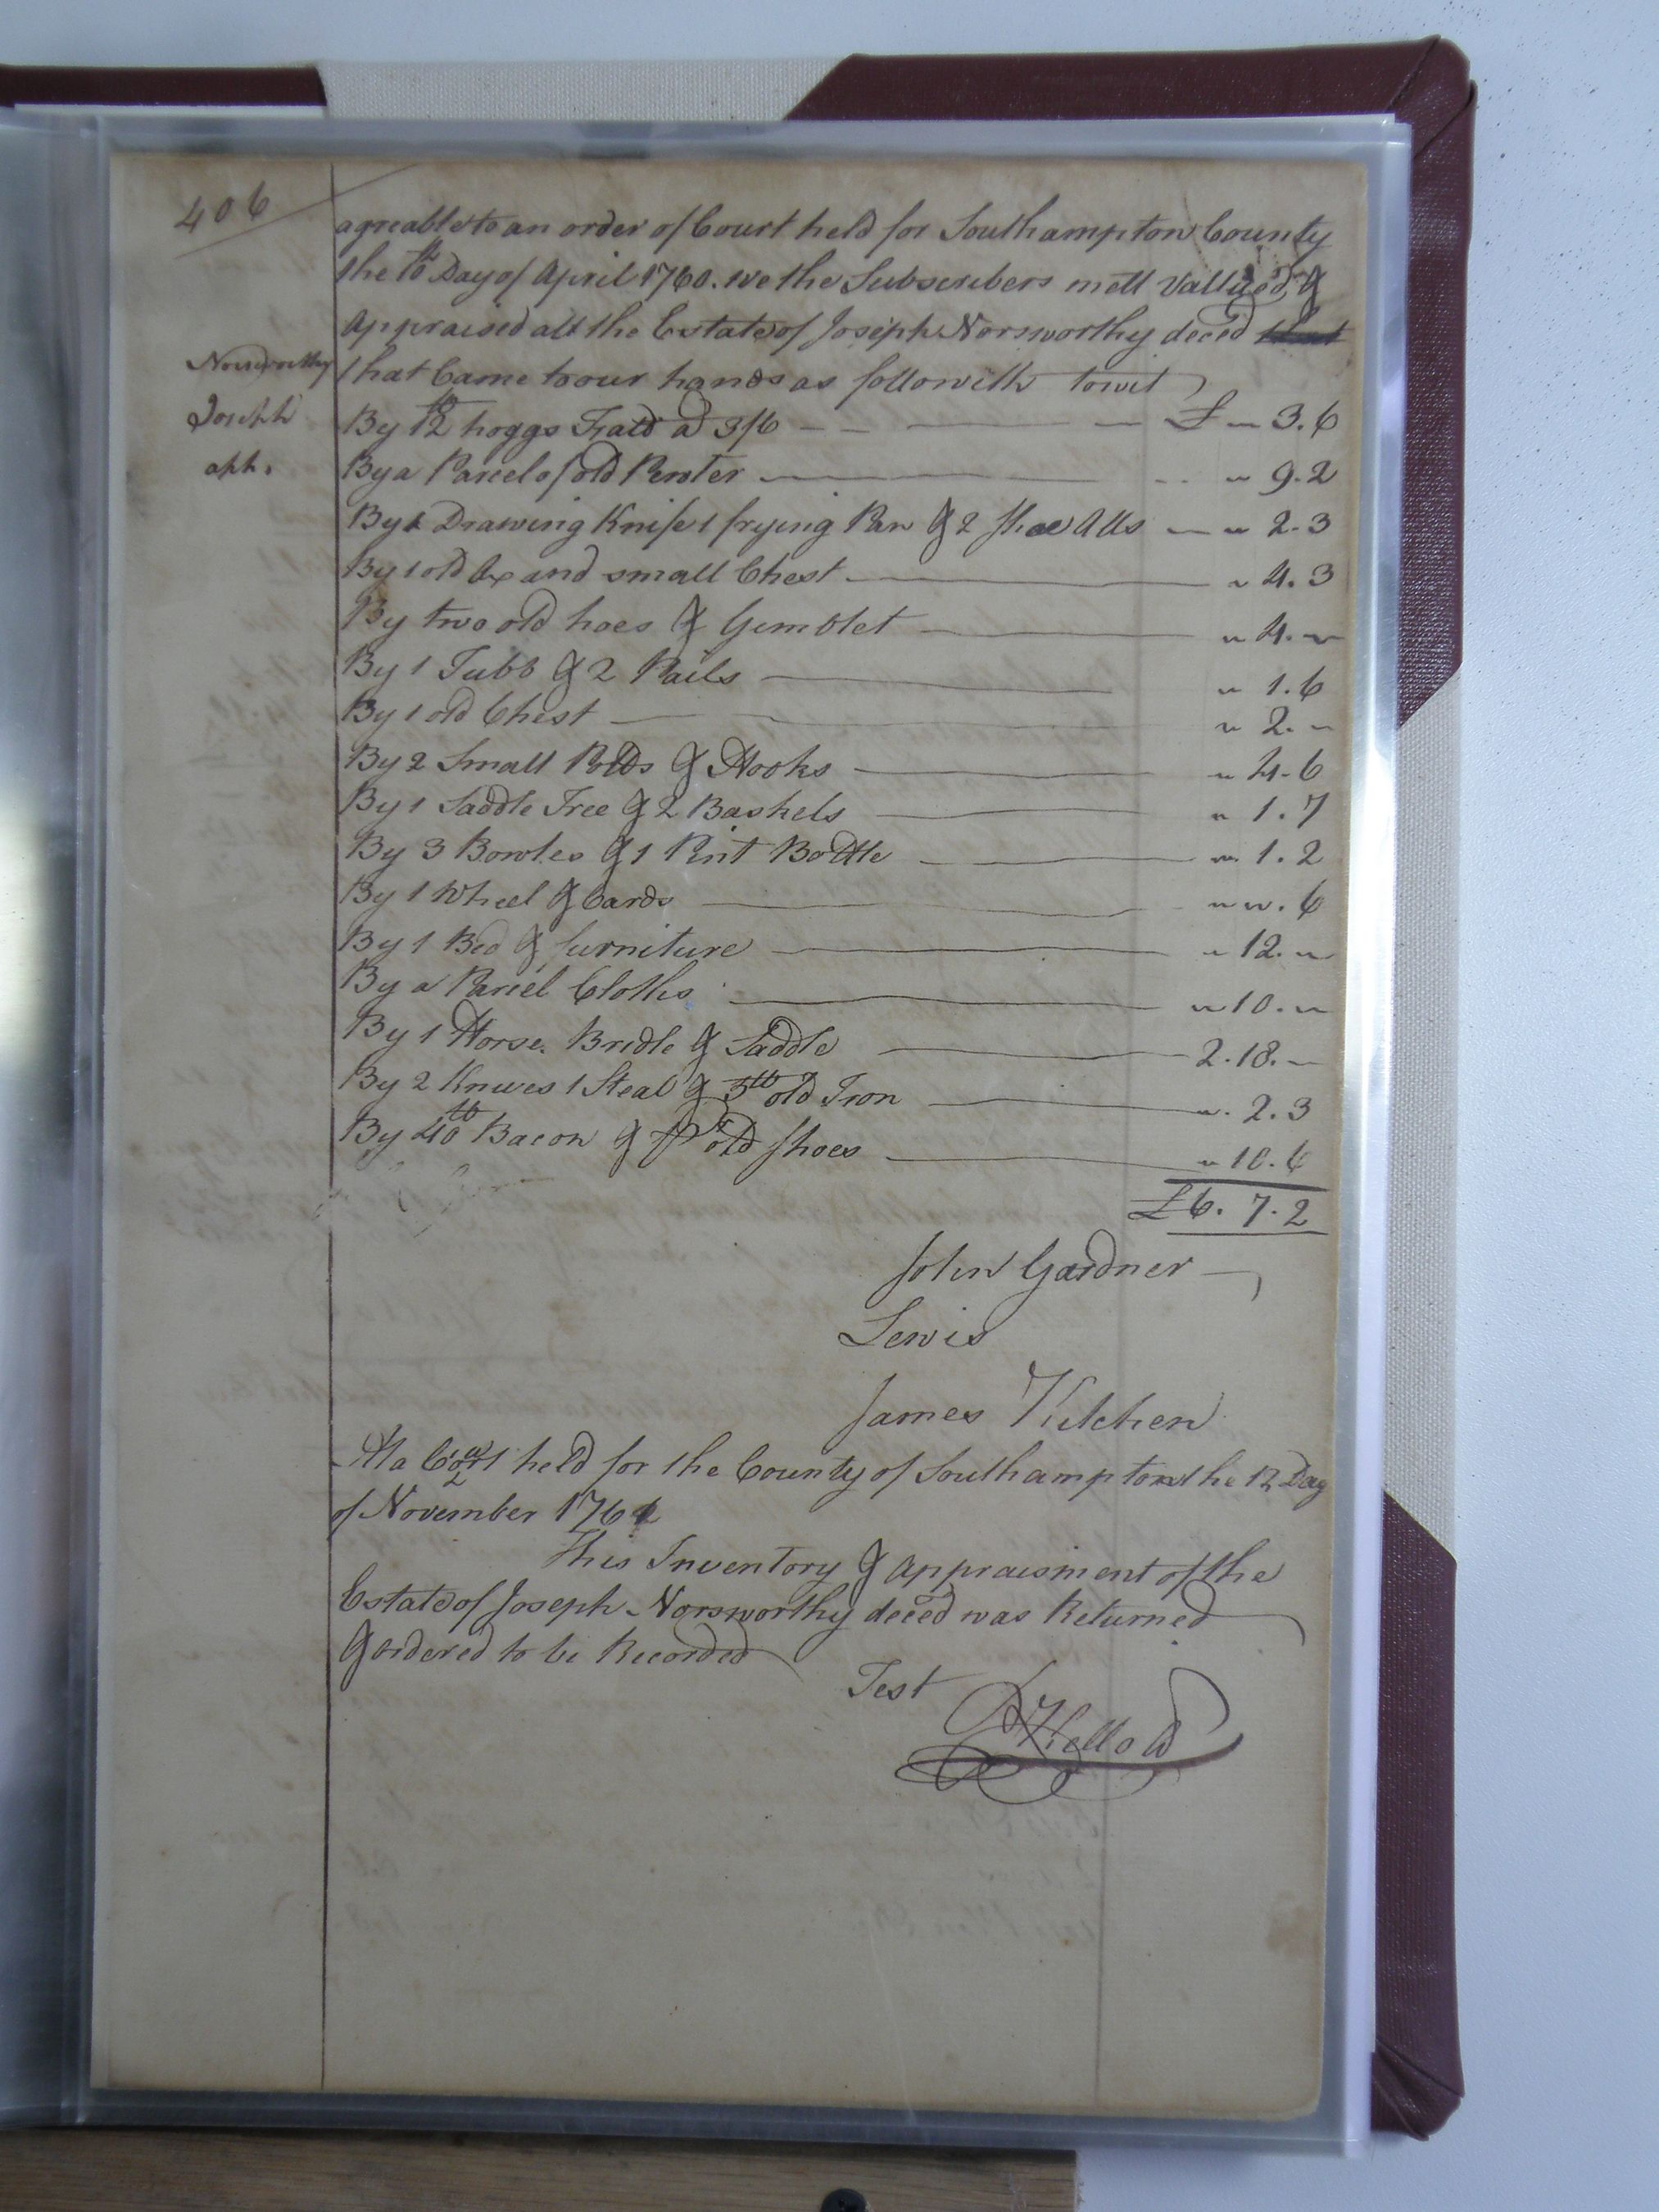 406
agreable to an order of Court held for Southampton County
the 10th Day of April 1760. we the Subscribers mett Vallued &
Appraised all the Estate of Joseph Norsworthy deced that
Norsworthy
that Came to our hands as followith towit
Joseph
By 12 hoggs Fatt a 3/6 £ " 3.6
apt.
By a Parcel of old Pewter " 9.2
By 1 Drawing Knife 1 frying Pan & 2 Shoe Alls " 2.3
By 1 old Ax and small Chest " 4.3
By two old hoes & Gimblet " 4. "
By 1 Tubb & 2 Pails " 1.6
By 1 old Chest " 2. "
By 2 Small Potts & Hooks " 4.6
By 1 Saddle Tree & 2 Baskets " 1.7
By 3 Bowles & 1 Pint Bottle " 1.2
By 1 Wheel & Cards " " . 6
By 1 Bed & furniture " 12. "
By a Parcel Cloths " 10. "
By 1 Horse. Bridle & Saddle 2.18. "
By 2 Knives 1 Steal & 5lb old Iron " 2.3
By 40lb Bacon & pr old Shoes " 10.6
£6. 7.2
John Gardner
Lewis
James Kitchen
At a Court held for the County of Southampton the 12 Day
of November 1761
This Inventory & Appraisment of the
Estate of Joseph Norsworthy deced was Returned
& ordered to be Recorded
Test
R Kello